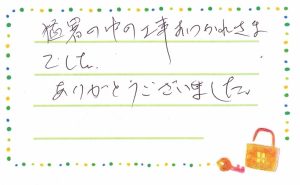 猛暑の中の工事おつかれさま
でした。
ありがとうございました。